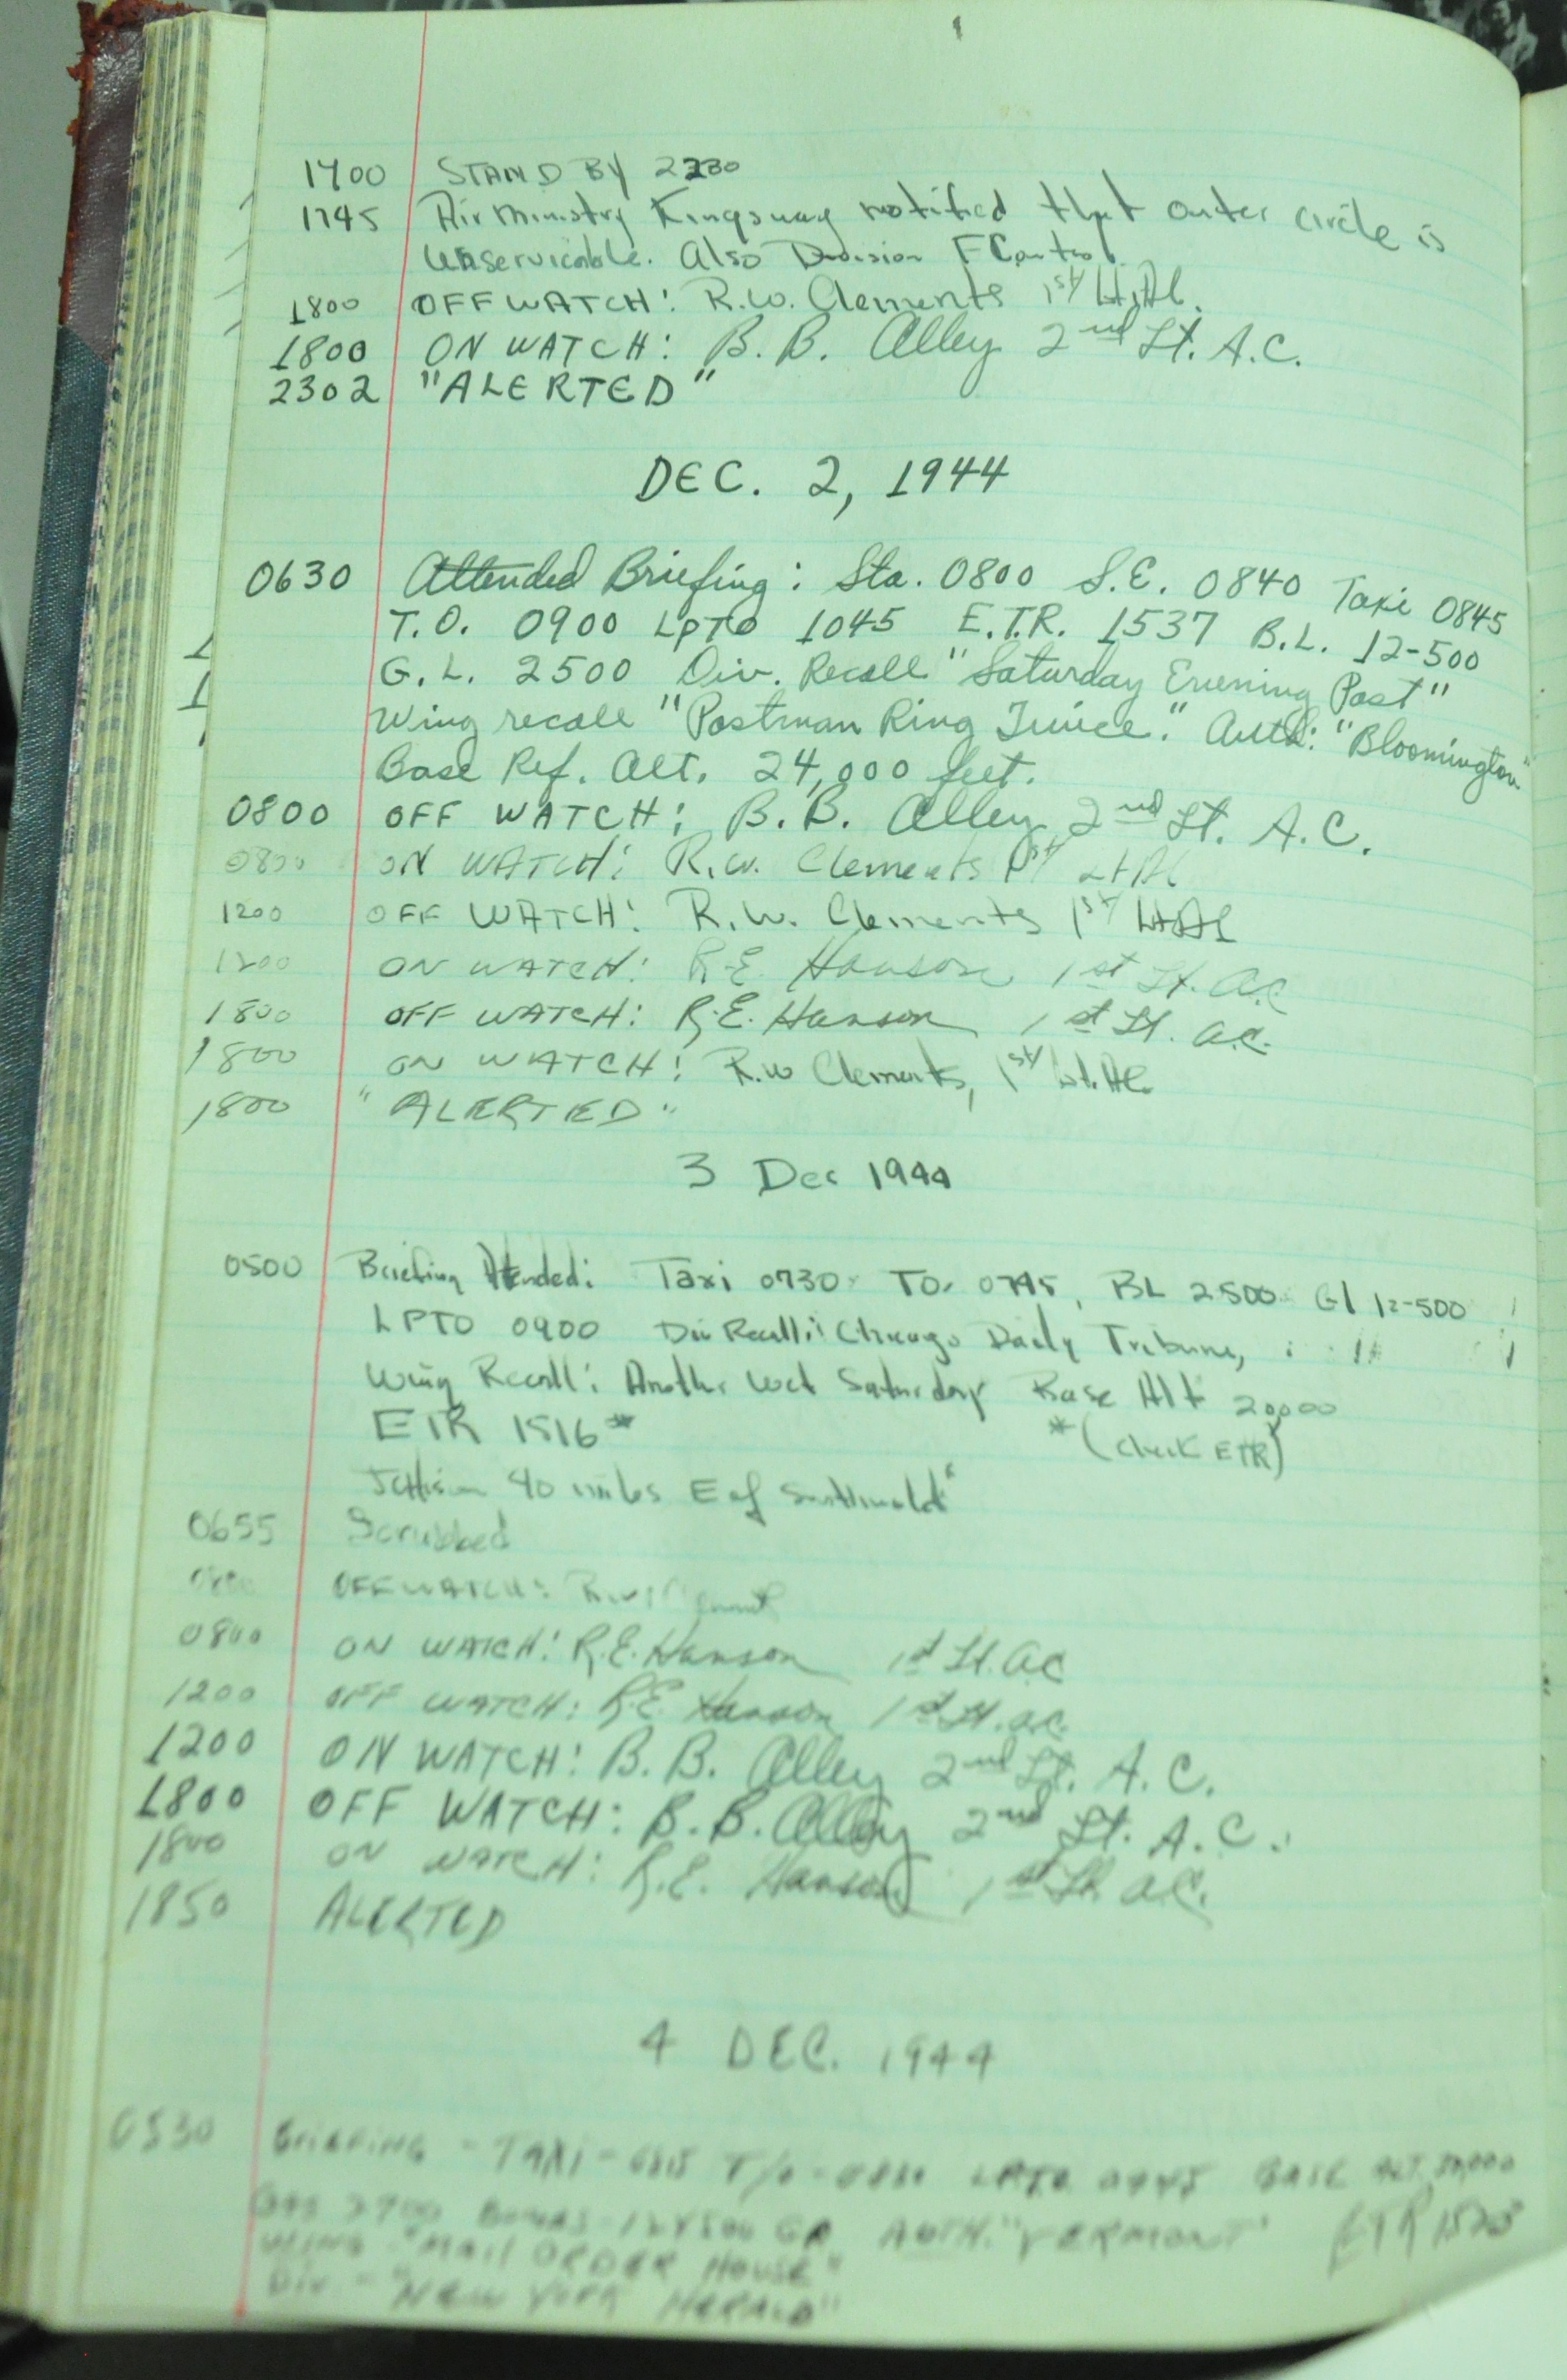 1700 STAND BY 2230
1745 Air Ministry Kingsway notified that outer circle is
unservicable. Also Division F Control.
1800 OFF WATCH: R.W. Clements 1st Lt. AC.
1800 ON WATCH: B. B. Alley 2nd Lt. A.C.
2302 "ALERTED"
DEC. 2, 1944
0630 Attended Briefing: Sta. 0800 S.E. 0840 Taxi 0845
T.O. 0900 LPTO 1045 E.T.R. 1537 B.L. 12-500
G.L. 2500 Div. Recall "Saturday Evening Post"
Wing recall "Postman Ring Twice." Auth: "Bloomington"
Base Ref. Alt. 24,000 feet.
0800 OFF WATCH: B. B. Alley 2nd Lt. A.C.
0800 ON WATCH: R.W. Clements 1st Lt AC
1200 OFF WATCH: R.W. Clements 1st Lt AC
1200 ON WATCH: R.E. Hanson 1st Lt. A.C
1800 OFF WATCH: R.E. Hanson 1st Lt. A.C.
1800 ON WATCH: R.W Clements, 1st Lt. AC
1800 "ALERTED"
3 Dec 1944
0500 Briefing Attended: Taxi 0730 TO. 0745, BL 2500 Gl 12-500
LPTO 0900 Div Recall: Chicago Daily Tribune,
Wing Recall: Another Wet Saturday Base Alt 20,000
ETR 1516* *(Check ETR)
Jettison 40 miles E of Southwold
0655 Scrubbed
OFF WATCH:
0800 ON WATCH: R.E. Hanson 1st Lt. AC
1200 OFF WATCH: R.E. Hanson 1st Lt. A.C.
1200 ON WATCH: B. B. Alley 2nd Lt. A.C.
1800 OFF WATCH: B. B. Alley 2nd Lt. A.C.
1800 ON WATCH: R.E. Hanson 1st Lt. A.C.
1850 ALERTED
4 DEC. 1944
0530 BRIEFING - TAXI - T/O - LPTO BASE ALT.
GAS 2700 BOMBS AUTH. "VERMONT" ETR
WING "MAIL ORDER HOUSE"
DIV. - "NEW YORK HERALD"